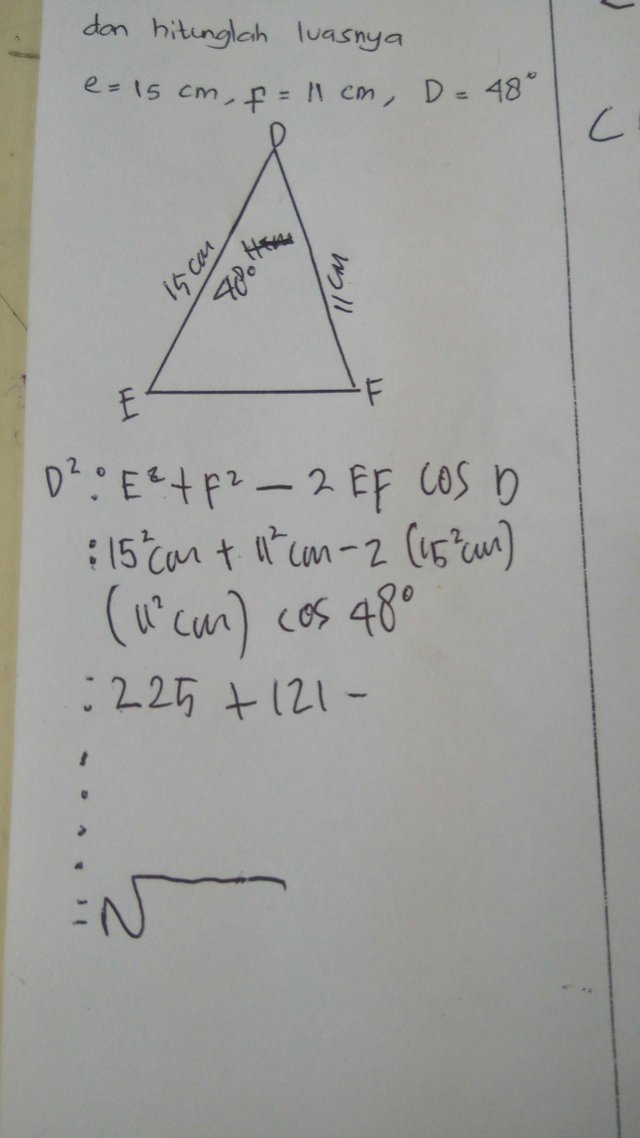 dan hitunglah luasnya
e = 15 cm, f = 11 cm, D = 48°
D
15 cm
48°
11 cm
E
F
D² : E² + F² - 2 EF cos D
: 15² cm + 11² cm - 2 (15² cm)
(11² cm) cos 48°
: 225 + 121 -
C